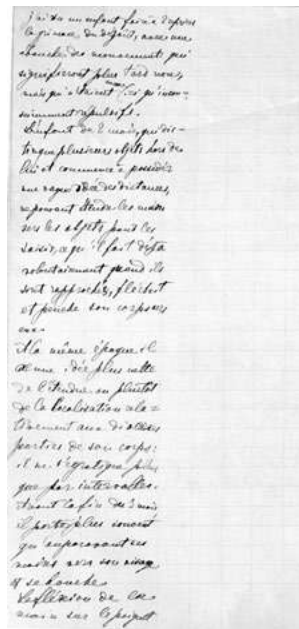 j'ai vu un enfant faire à 2 mois
la grimace du dégoût, avec une
bouche des mouvements qui
signifieront plus tard non,
mais qui n'étaient
nairement répulsifs.
L'enfant de 2 mois, qui dis-
tingue plusieurs objets hors de
lui et commence à posséder
une vague idée des distances,
ne pouvant étendre les mains
vers les objets pour les
saisir, ce qu'il fait déjà
volontairement quand ils
sont rapprochés, fléchit
et penche son corps vers
eux.
A la même époque, il
a une idée plus nette
de l'étendue ou plutôt
de la localisation rela-
tivement aux diverses
parties de son corps :
il ne s'égratigne plus
que par intervalles.
Avant la fin du 2 mois
il porte plus souvent
qu'auparavant ses
mains vers son visage
et sa bouche.
La flexion de la
main sur le poignet